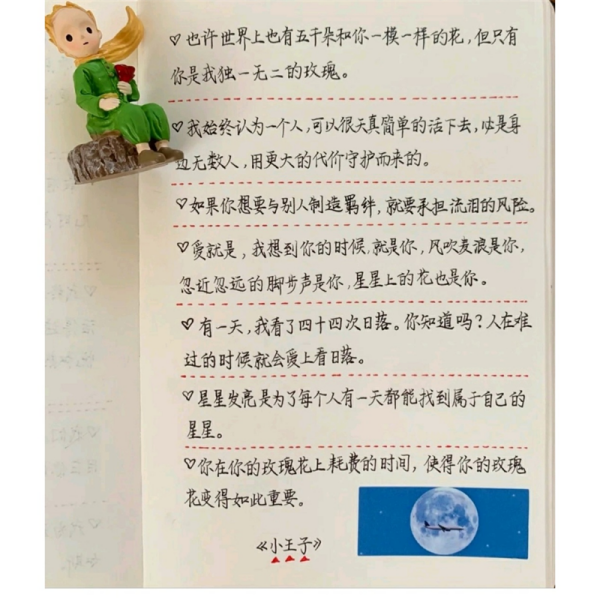 ♡也许世界上也有五千朵和你一模一样的花，但只有
你是我独一无二的玫瑰。
♡我始终认为一个人，可以很天真简单的活下去，必是身
边无数人，用更大的代价守护而来的。
♡如果你想要与别人制造羁绊，就要承担流泪的风险。
♡爱就是，我想到你的时候，就是你，风吹麦浪是你，
忽近忽远的脚步声是你，星星上的花也是你。
♡有一天，我看了四十四次日落。你知道吗？人在难
过的时候就会爱上看日落。
♡星星发亮是为了每个人有一天都能找到属于自己的
星星。
♡你在你的玫瑰花上耗费的时间，使得你的玫瑰
花变得如此重要。
《小王子》